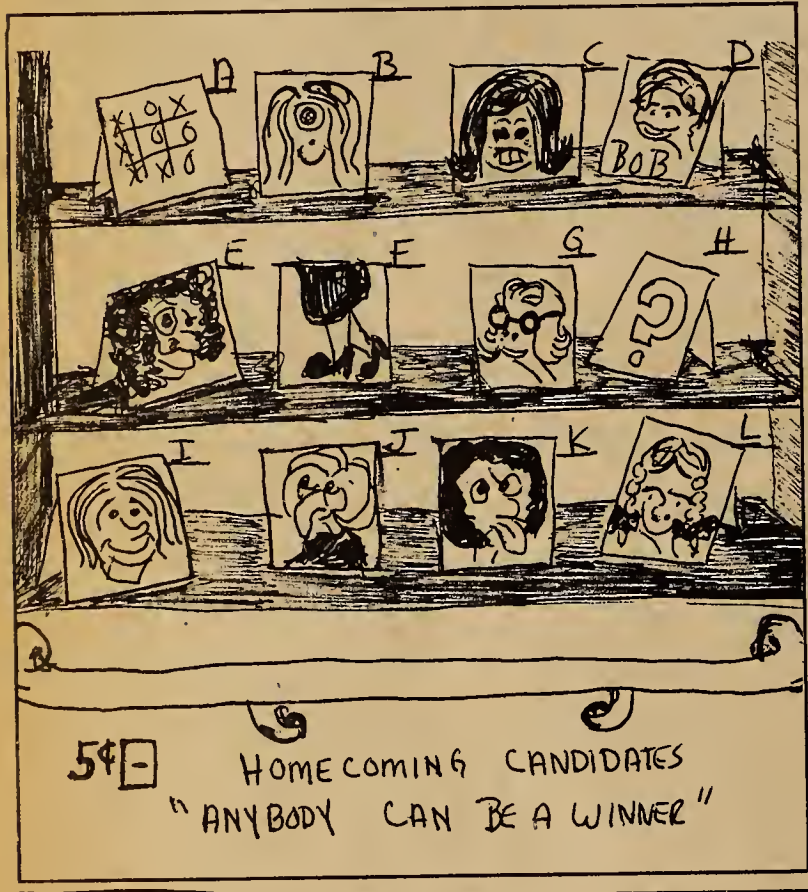 A B C D
X O X
X O O
X X O
BOB
E F G H
?
I J K L
5¢ -
HOMECOMING CANDIDATES
"ANYBODY CAN BE A WINNER"